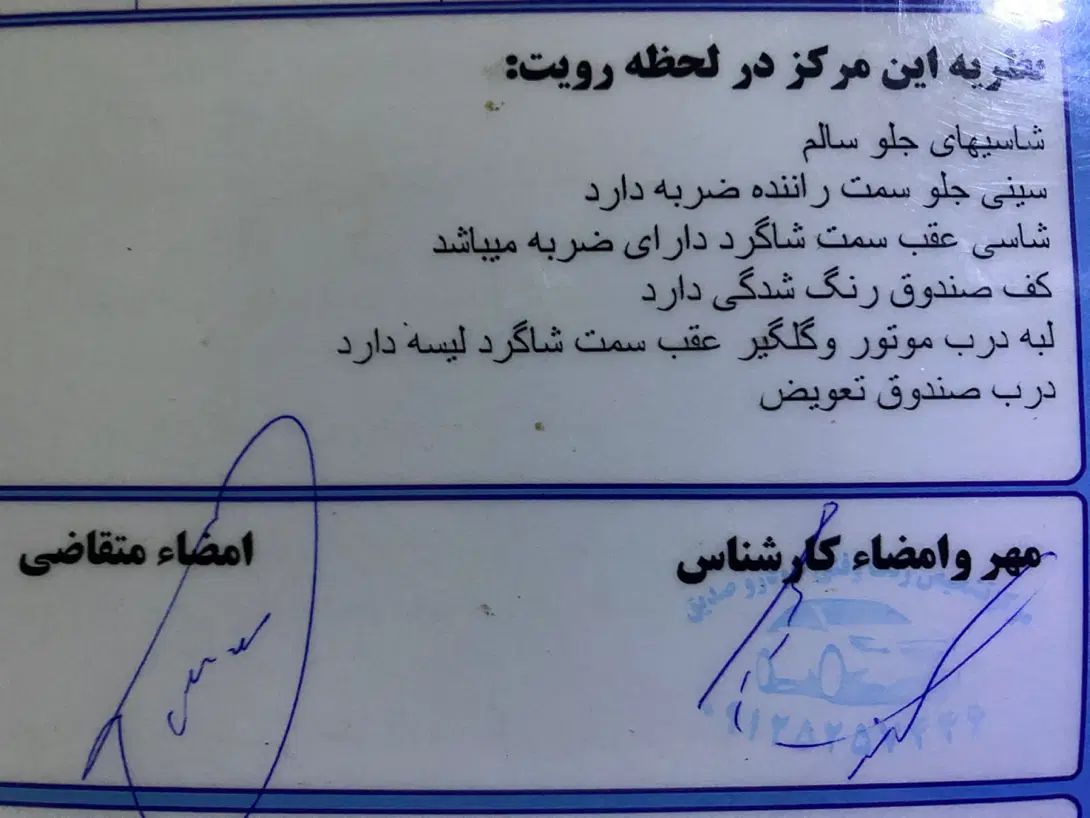 نظریه این مرکز در لحظه رویت:
شاسیهای جلو سالم
سینی جلو سمت راننده ضربه دارد
شاسی عقب سمت شاگرد دارای ضربه میباشد
کف صندوق رنگ شدگی دارد
لبه درب موتور وگلگیر عقب سمت شاگرد لیسه دارد
درب صندوق تعویض
مهر وامضاء کارشناس
امضاء متقاضی